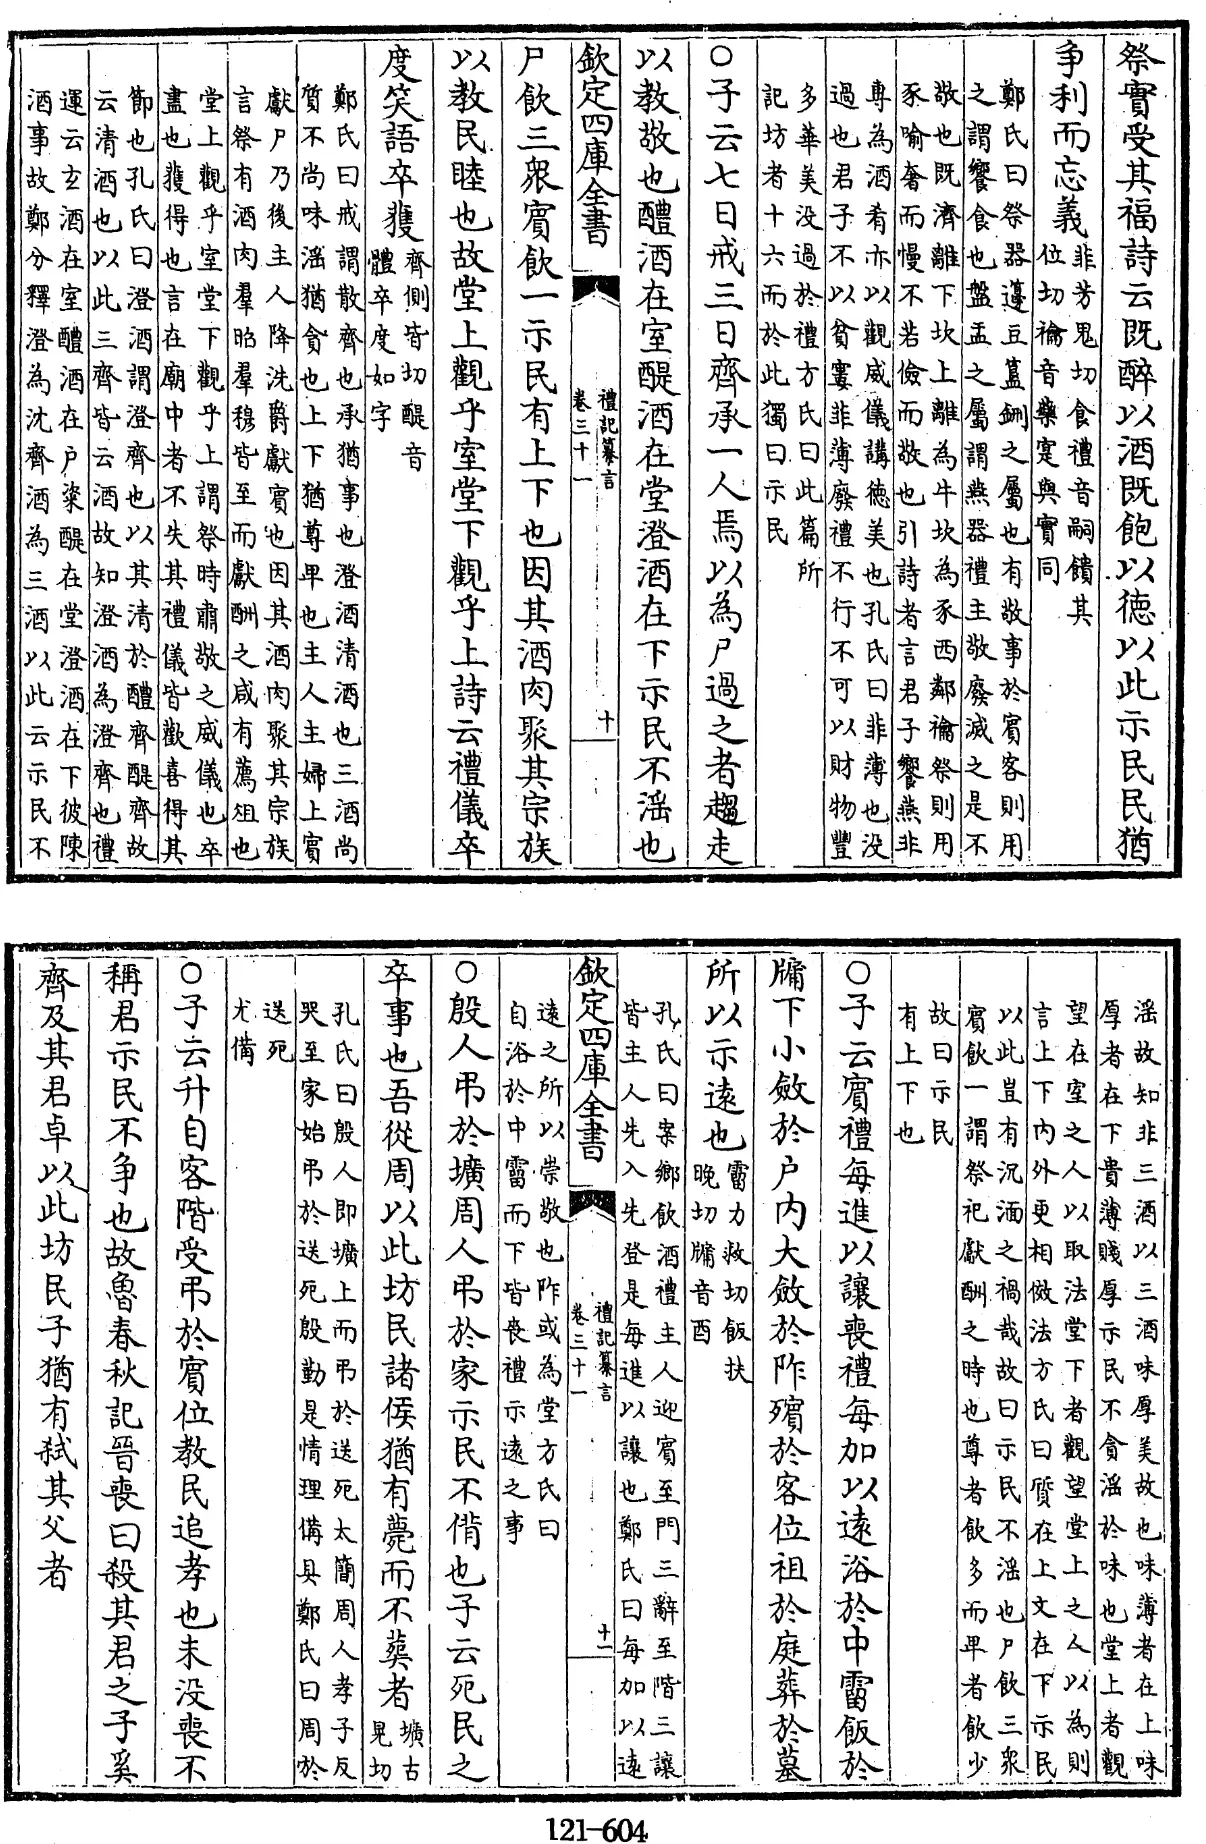 祭實受其福詩云既醉以酒既飽以徳以此示民民猶
争利而忘義非芳鬼切食禮音嗣饋其
位切禴音藥寔與實同
鄭氏曰祭器籩豆簋鉶之屬也有敬事於賓客則用
之謂饗食也盤盂之屬謂燕器禮主敬廢滅之是不
敬也既濟離下坎上離為牛坎為豕西鄰禴祭則用
豕喻奢而慢不若儉而敬也引詩者言君子饗燕非
專為酒肴亦以觀威儀講徳美也孔氏曰非薄也没
過也君子不以貧窶菲薄廢禮不行不可以財物豐
多華美没過於禮方氏曰此篇所
記坊者十六而於此獨曰示民
○子云七日戒三日齊承一人焉以為尸過之者趨走
以教敬也醴酒在室醍酒在堂澄酒在下示民不淫也
欽定四庫全書
禮記纂言
卷三十一
十
尸飲三衆賓飲一示民有上下也因其酒肉聚其宗族
以教民睦也故堂上觀乎室堂下觀乎上詩云禮儀卒
度笑語卒獲齊側皆切醍音
體卒度如字
鄭氏曰戒謂散齊也承猶事也澄酒清酒也三酒尚
質不尚味淫猶貪也上下猶尊卑也主人主婦上賓
獻尸乃後主人降洗爵獻賓也因其酒肉聚其宗族
言祭有酒肉羣昭羣穆皆至而獻酬之咸有薦俎也
堂上觀乎室堂下觀乎上謂祭時肅敬之威儀也卒
盡也獲得也言在廟中者不失其禮儀皆歡喜得其
節也孔氏曰澄酒謂澄齊也以其清於醴齊醍齊故
云清酒也以此三齊皆云酒故知澄酒為澄齊也禮
運云玄酒在室醴酒在户粢醍在堂澄酒在下彼陳
酒事故鄭分釋澄為沈齊酒為三酒以此云示民不
淫故知非三酒以三酒味厚美故也味薄者在上味
厚者在下貴薄賤厚示民不貪淫於味也堂上者觀
望在室之人以取法堂下者觀望堂上之人以為則
言上下内外更相倣法方氏曰質在上文在下示民
以此豈有沉湎之禍哉故曰示民不淫也尸飲三衆
賓飲一謂祭祀獻酬之時也尊者飲多而卑者飲少
故曰示民
有上下也
○子云賓禮每進以讓喪禮每加以逺浴於中霤飯於
牖下小斂於户内大斂於阼殯於客位祖於庭葬於墓
所以示逺也霤力救切飯扶
晚切牖音酉
孔氏曰案鄉飲酒禮主人迎賓至門三辭至階三讓
皆主人先入先登是每進以讓也鄭氏曰每加以逺
欽定四庫全書
禮記纂言
卷三十一
十一
逺之所以崇敬也阼或為堂方氏曰
自浴於中霤而下皆喪禮示逺之事
○殷人弔於壙周人弔於家示民不偝也子云死民之
卒事也吾從周以此坊民諸侯猶有薨而不葬者壙古
晃切
孔氏曰殷人即壙上而弔於送死太簡周人孝子反
哭至家始弔於送死殷勤是情理備具鄭氏曰周於
送死
尤備
○子云升自客階受弔於賓位教民追孝也未没喪不
稱君示民不争也故魯春秋記晉喪曰殺其君之子奚
齊及其君卓以此坊民子猶有弑其父者
121-604